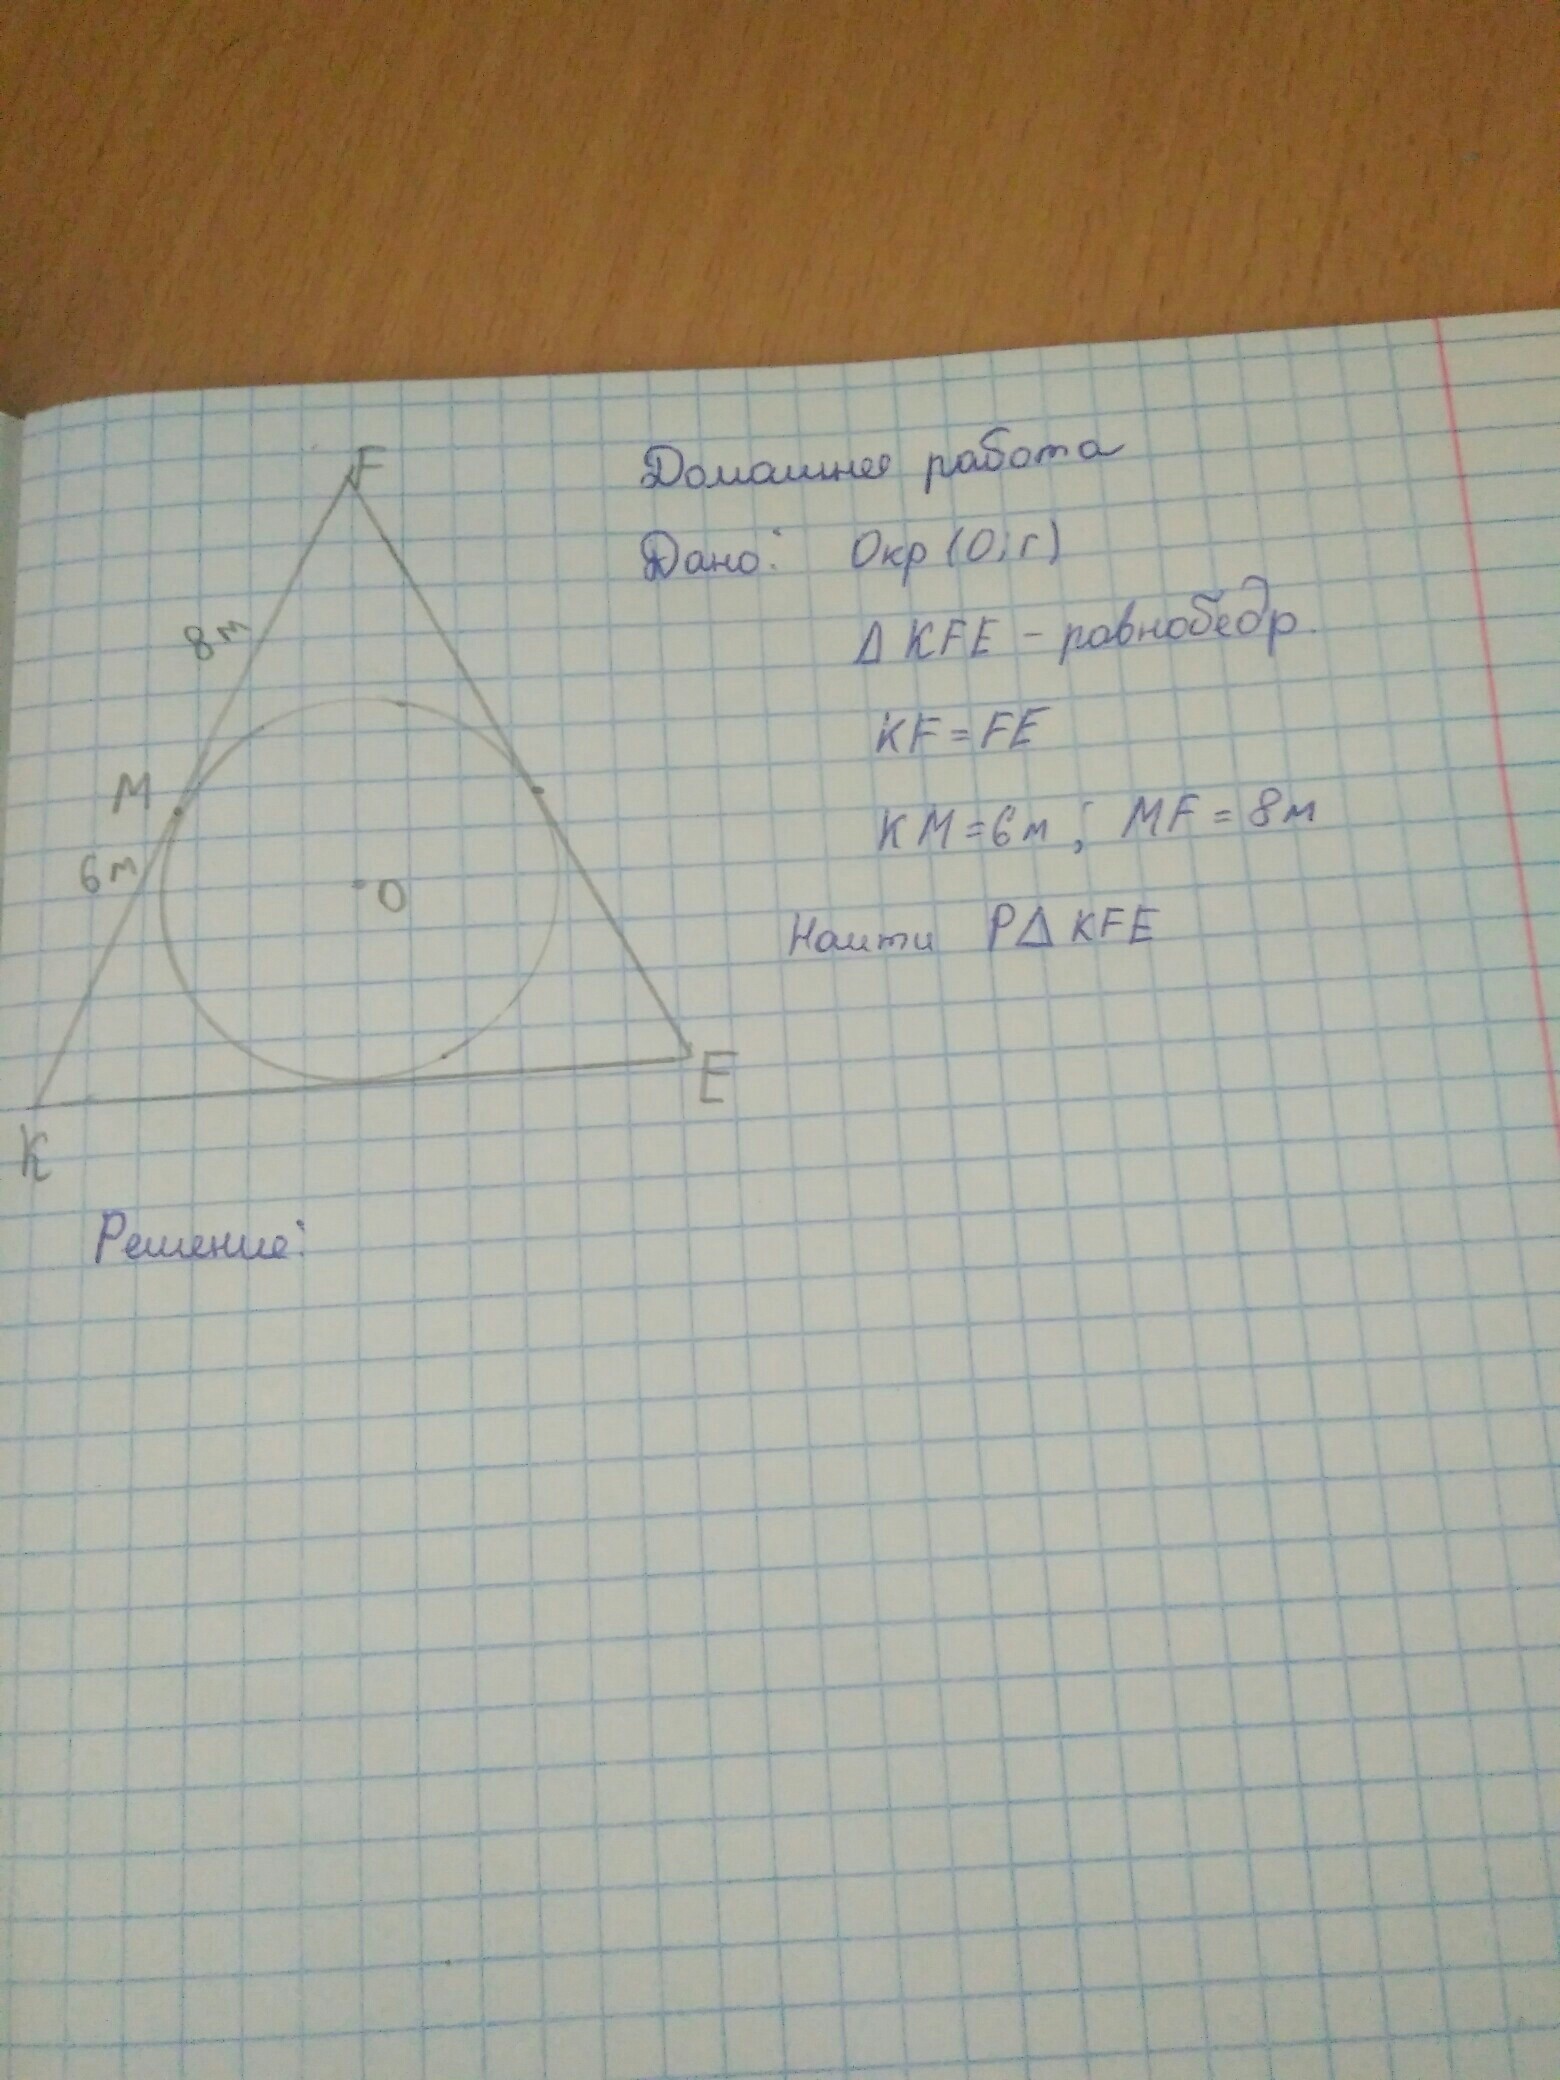 F
Домашнее работа
Дано: Окр (О; r)
Δ KFE - равнобедр.
8м
KF = FE
M
KM = 6м ; MF = 8м
6м
O
Найти P Δ KFE
E
K
Решение: